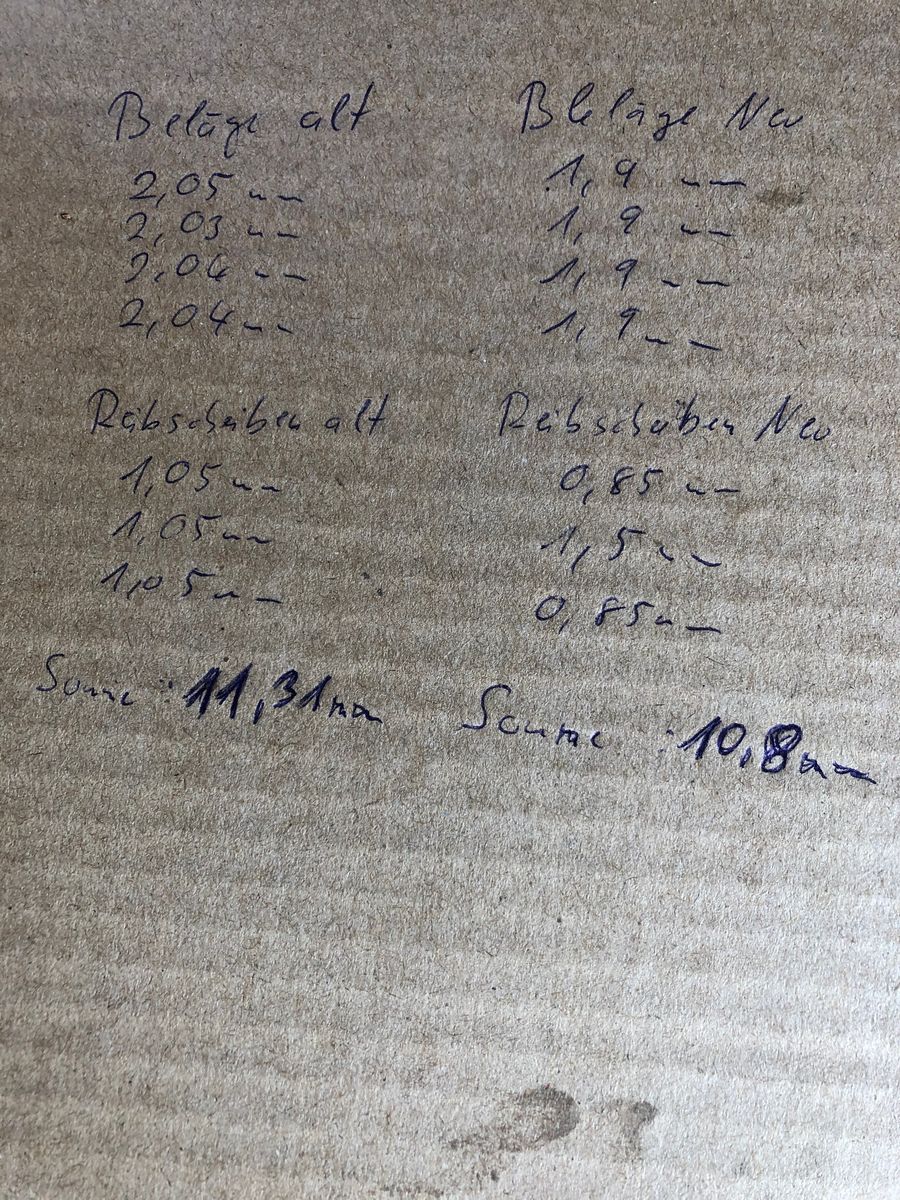 Beläge alt
2,05 mm
2,03 mm
2,04 mm
2,04 mm
Bleläge Neu
1,9 mm
1,9 mm
1,9 mm
1,9 mm
Reibscheiben alt
1,05 mm
1,05 mm
1,05 mm
Reibscheiben Neu
0,85 mm
1,5 mm
0,85 mm
Summe : 11,31 mm
Summe : 10,8 mm